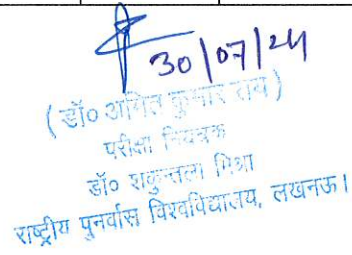 30/07/24
(डॉ० अमित कुमार राय)
परीक्षा नियंत्रक
डॉ० शकुन्तला मिश्रा
राष्ट्रीय पुनर्वास विश्वविद्यालय, लखनऊ।